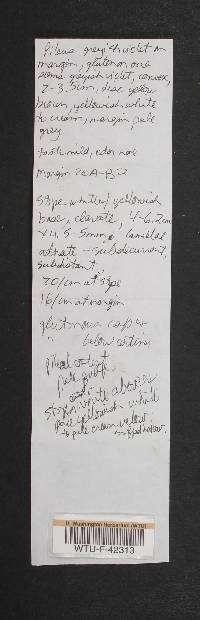 Pileus greyish violet on
margin, glutenous, one
some greyish violet, convex,
2-3.5cm, disc yellow
brown, yellowish white
to cream, margin pale
grey
taste mild, odor none
margin 20A-B2
stipe white, yellowish
base, clavate, 4-6.2cm
x 4.5-5mm, lamellae
adnate - subdecurrent,
subdistant,
20/cm at stipe
16/cm at margin
glutinous cap &
" below cortina
pileal context
pale
stipe white above
pale yellowish white
to pale cream below
U. Washington Herbarium (WTU)
WTU-F-42313